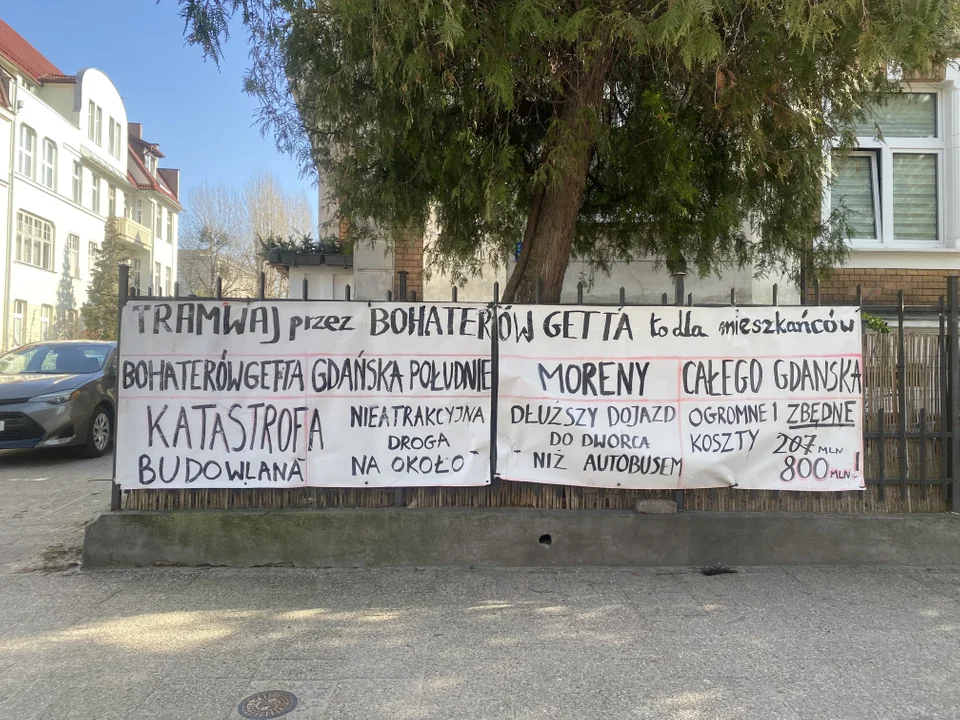 TRAMWAJ przez BOHATERÓW GETTA to dla mieszkańców
BOHATERÓW GETTA
KATASTROFA
BUDOWLANA
GDAŃSKA POŁUDNIE
NIEATRAKCYJNA
DROGA
NA OKOŁO
MORENY
DŁUŻSZY DOJAZD
DO DWORCA
NIŻ AUTOBUSEM
CAŁEGO GDANSKA
OGROMNE I ZBĘDNE
KOSZTY 207 MLN
800 MLN !